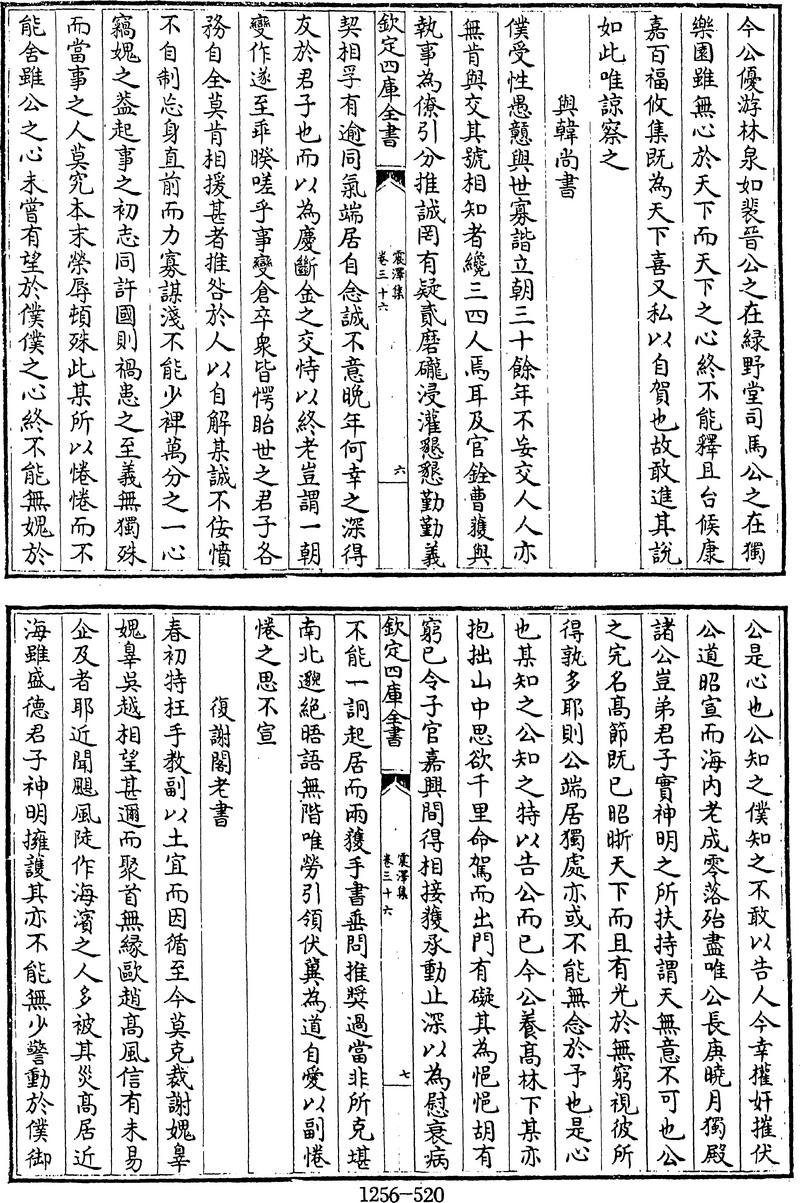 今公優游林泉如裴晉公之在緑野堂司馬公之在獨
樂園雖無心於天下而天下之心終不能釋且台候康
嘉百福攸集既為天下喜又私以自賀也故敢進其說
如此唯諒察之
與韓尚書
僕受性愚戇與世寡諧立朝三十餘年不妄交人人亦
無肯與交其號相知者纔三四人焉耳及官銓曹獲與
執事為僚引分推誠罔有疑貳磨礲浸灌懇懇勤勤義
欽定四庫全書
震澤集
卷三十六
六
契相孚有逾同氣端居自念誠不意晚年何幸之深得
友於君子也而以為慶斷金之交恃以終老豈謂一朝
變作遂至乖暌嗟乎事變倉卒衆皆愕眙世之君子各
務自全莫肯相援甚者推咎於人以自解某誠不佞憤
不自制忘身直前而力寡謀淺不能少裨萬分之一心
竊媿之葢起事之初志同許國則禍患之至義無獨殊
而當事之人莫究本末榮辱頓殊此某所以惓惓而不
能舍雖公之心未嘗有望於僕僕之心終不能無媿於
公是心也公知之僕知之不敢以告人今幸權奸摧伏
公道昭宣而海内老成零落殆盡唯公長庚曉月獨殿
諸公豈弟君子實神明之所扶持謂天無意不可也公
之完名髙節既已昭晰天下而且有光於無窮視彼所
得孰多耶則公端居獨處亦或不能無念於予也是心
也某知之公知之特以告公而已今公養髙林下某亦
抱拙山中思欲千里命駕而出門有礙其為悒悒胡有
窮已令子官嘉興間得相接獲承動止深以為慰衰病
欽定四庫全書
震澤集
卷三十六
七
不能一詗起居而兩獲手書垂問推奬過當非所克堪
南北邈絶晤語無階唯勞引領伏冀為道自愛以副惓
惓之思不宣
復謝閣老書
春初特枉手教副以土宜而因循至今莫克裁謝媿辠
媿辠吳越相望甚邇而聚首無縁歐趙髙風信有未易
企及者耶近聞颶風陡作海濱之人多被其災髙居近
海雖盛德君子神明擁護其亦不能無少警動於僕御
1256—520